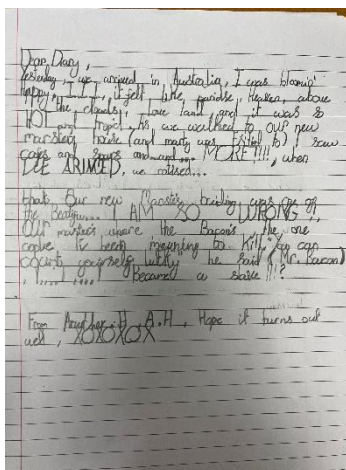 Dear Diary,
Yesterday, we arrived in Australia, I was bloomin'
happy, I.I.I, it felt like paridise, Heaven, above
all the clouds, I love land, and it was so
HOT and tropical. As we walked to our new
marster's house (and marty was too) I saw
cafes and shops and and... MORE!!!!, when
WE ARIVED, we notised...
that, Our new Marster's briuling was one of
the Beatifull... I AM SO WRONG
OUR marster's where the Bacon's, the one
I've been meaning to Kill, "You can
count yourself lucky" he said (Mr. Bacon)
I, ..... I Became a slave!!!?
From Arthur.H, A.H, Hope it turns out
well, XOXOXOX